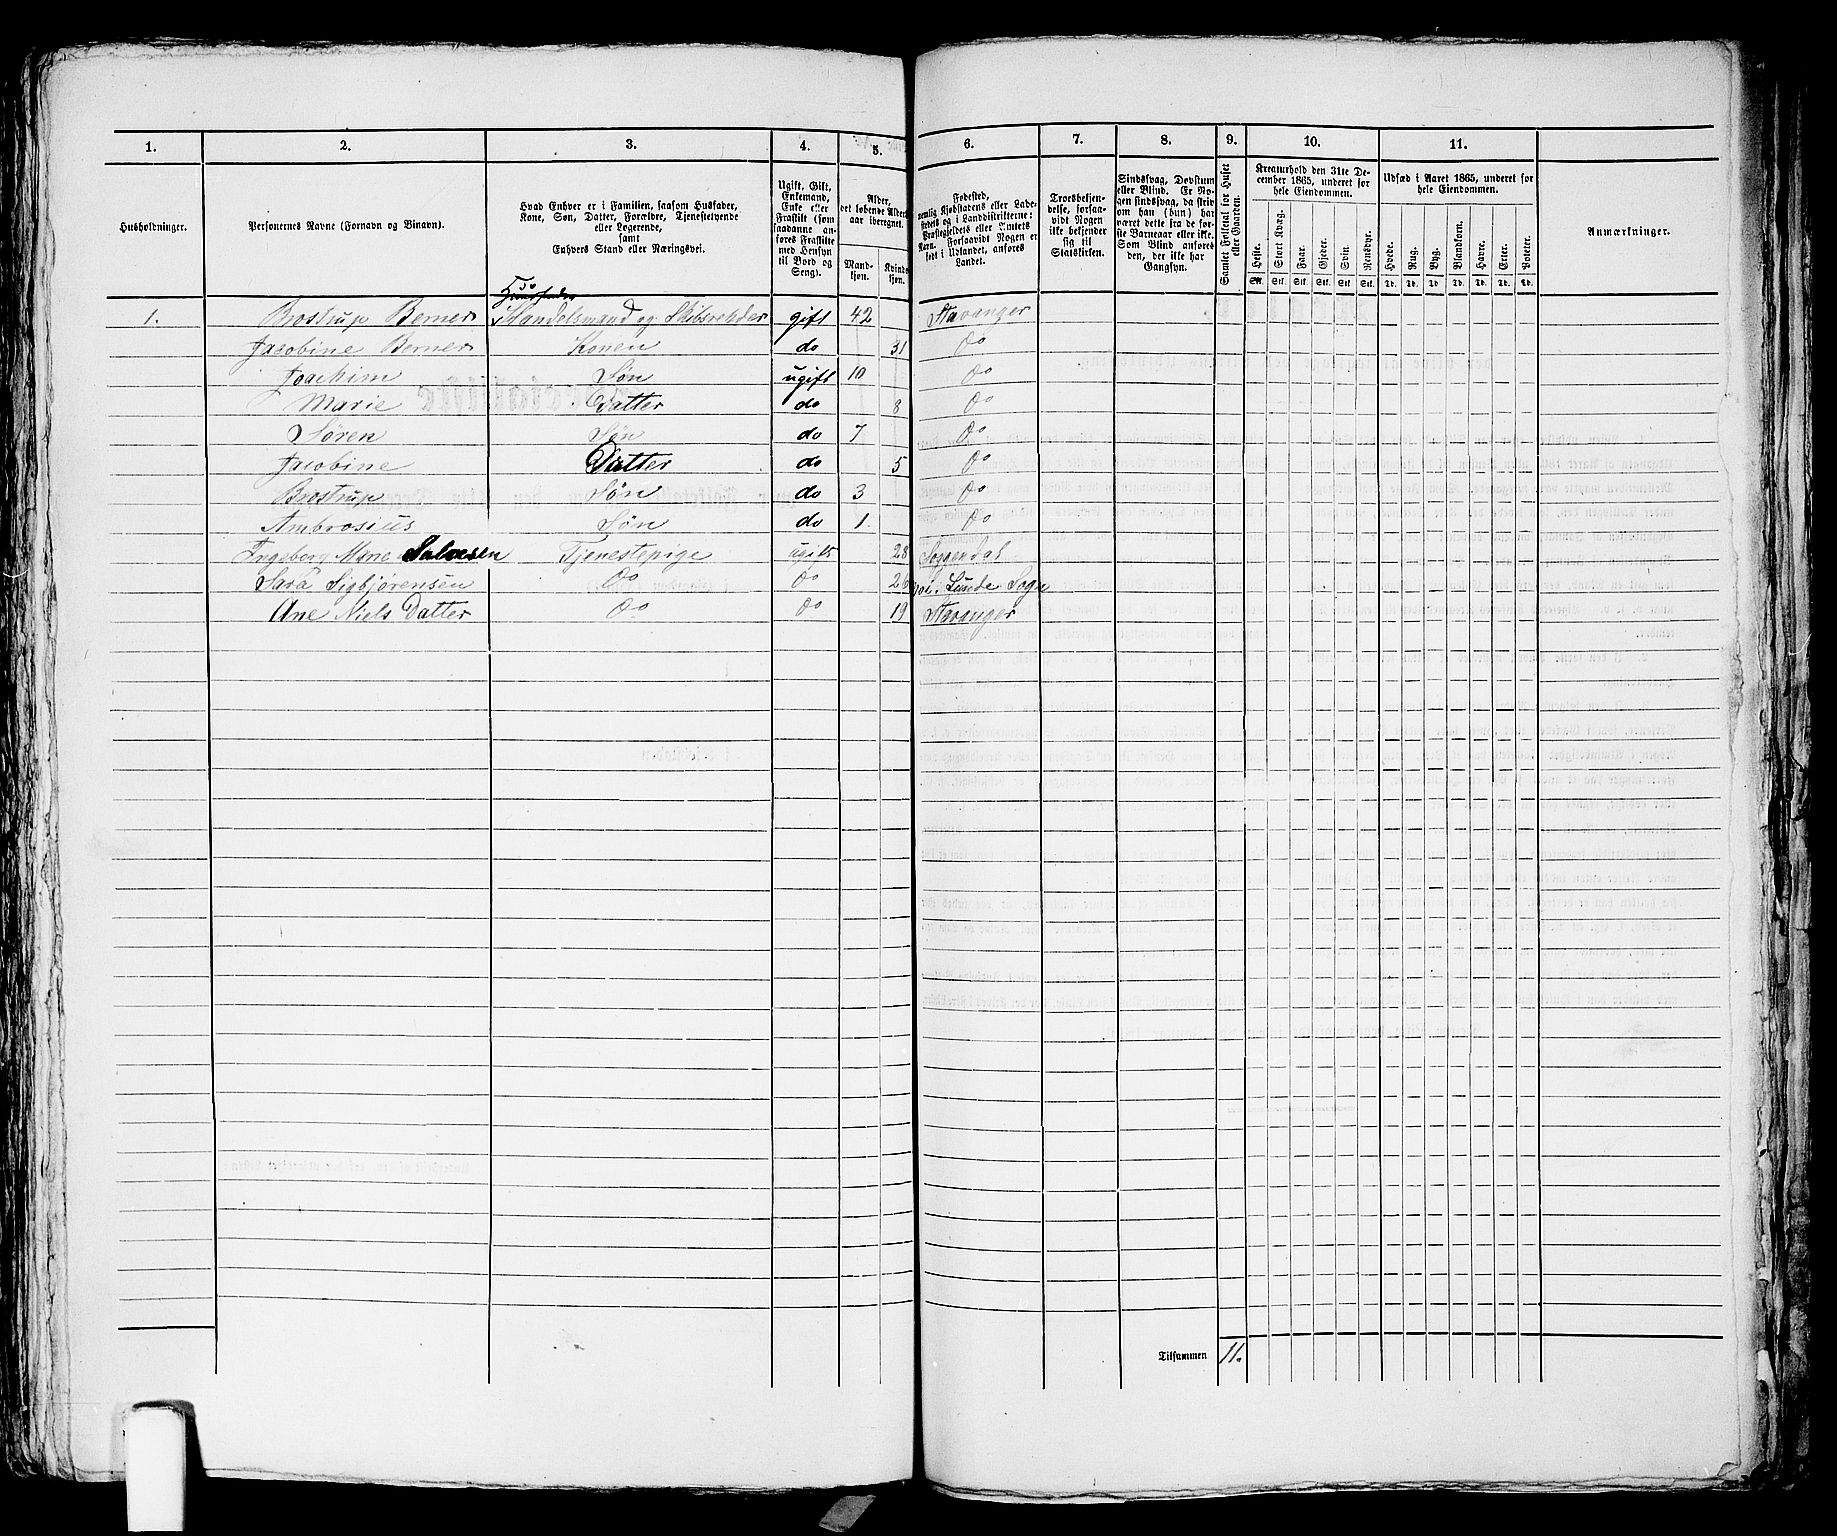 1. 2. 3. 4. 5. 6. 7. 8. 9. 10. 11.
Husholdninger.
Personernes Navne (Fornavn og Binavn).
Hvad Enhver er i Familien, saasom Husfader,
Kone, Søn, Datter, Forældre, Tjenestetyende
eller Logerende,
samt
Enhvers Stand eller Næringsvei.
Ugift, Gift,
Enkemand,
Enke eller
Fraskilt (som
saadanne an-
føres Fraskilte
med Hensyn
til Bord og
Seng).
Alder,
det løbende Alders-
aar iberegnet.
Mand-
kjøn.
Kvind-
kjøn.
Fødested,
nemlig Kjøbstadens eller Lade-
stedets og i Landdistrikterne:
Præstegjeldets eller Amtets
Navn. Forsaavidt Nogen er
født i Udlandet, anføres
Landet.
Troesbekjen-
delse, forsaa-
vidt Nogen
ikke bekjender
sig til
Statskirken.
Sindssvag, Døvstum
eller Blind. Er No-
gen sindssvag, da skriv
om han (hun) har
været dette fra de før-
ste Barneaar eller ikke.
Som Blind anføres
den, der ikke har
Gangsyn.
Samlet Folketal for Huset
eller Gaarden.
Kreaturhold den 31te De-
cember 1865, underet for
hele Eiendommen.
Heste. Stort Kvæg. Faar. Gjeder. Svin. Rensdyr.
Stk. Stk. Stk. Stk. Stk. Stk.
Udsæd i Aaret 1865, underet for
hele Eiendommen.
Hvede. Rug. Byg. Blandkorn. Havre. Erter. Poteter.
Td. Td. Td. Td. Td. Td. Td.
Anmærkninger.
Huusfader
1. Brostrup Berner Handelsmand og Skibsrehder gift 42 Stavanger
Jacobine Berner Konen do 31 Do
Joachim Søn ugift 10 Do
Marie Datter do 8 Do
Søren Søn do 7 Do
Jacobine Datter do 5 Do
Brostrup Søn do 3 Do
Ambrosius Søn do 1. Do
Ingeborg Marie Salvesen Tjenestepige ugift 28 Soggendal
Sara Sigbjørensen Do Do 26 Lunde Sogn
Ane Niels Datter Do Do 19 Stavanger
Tilsammen 11.